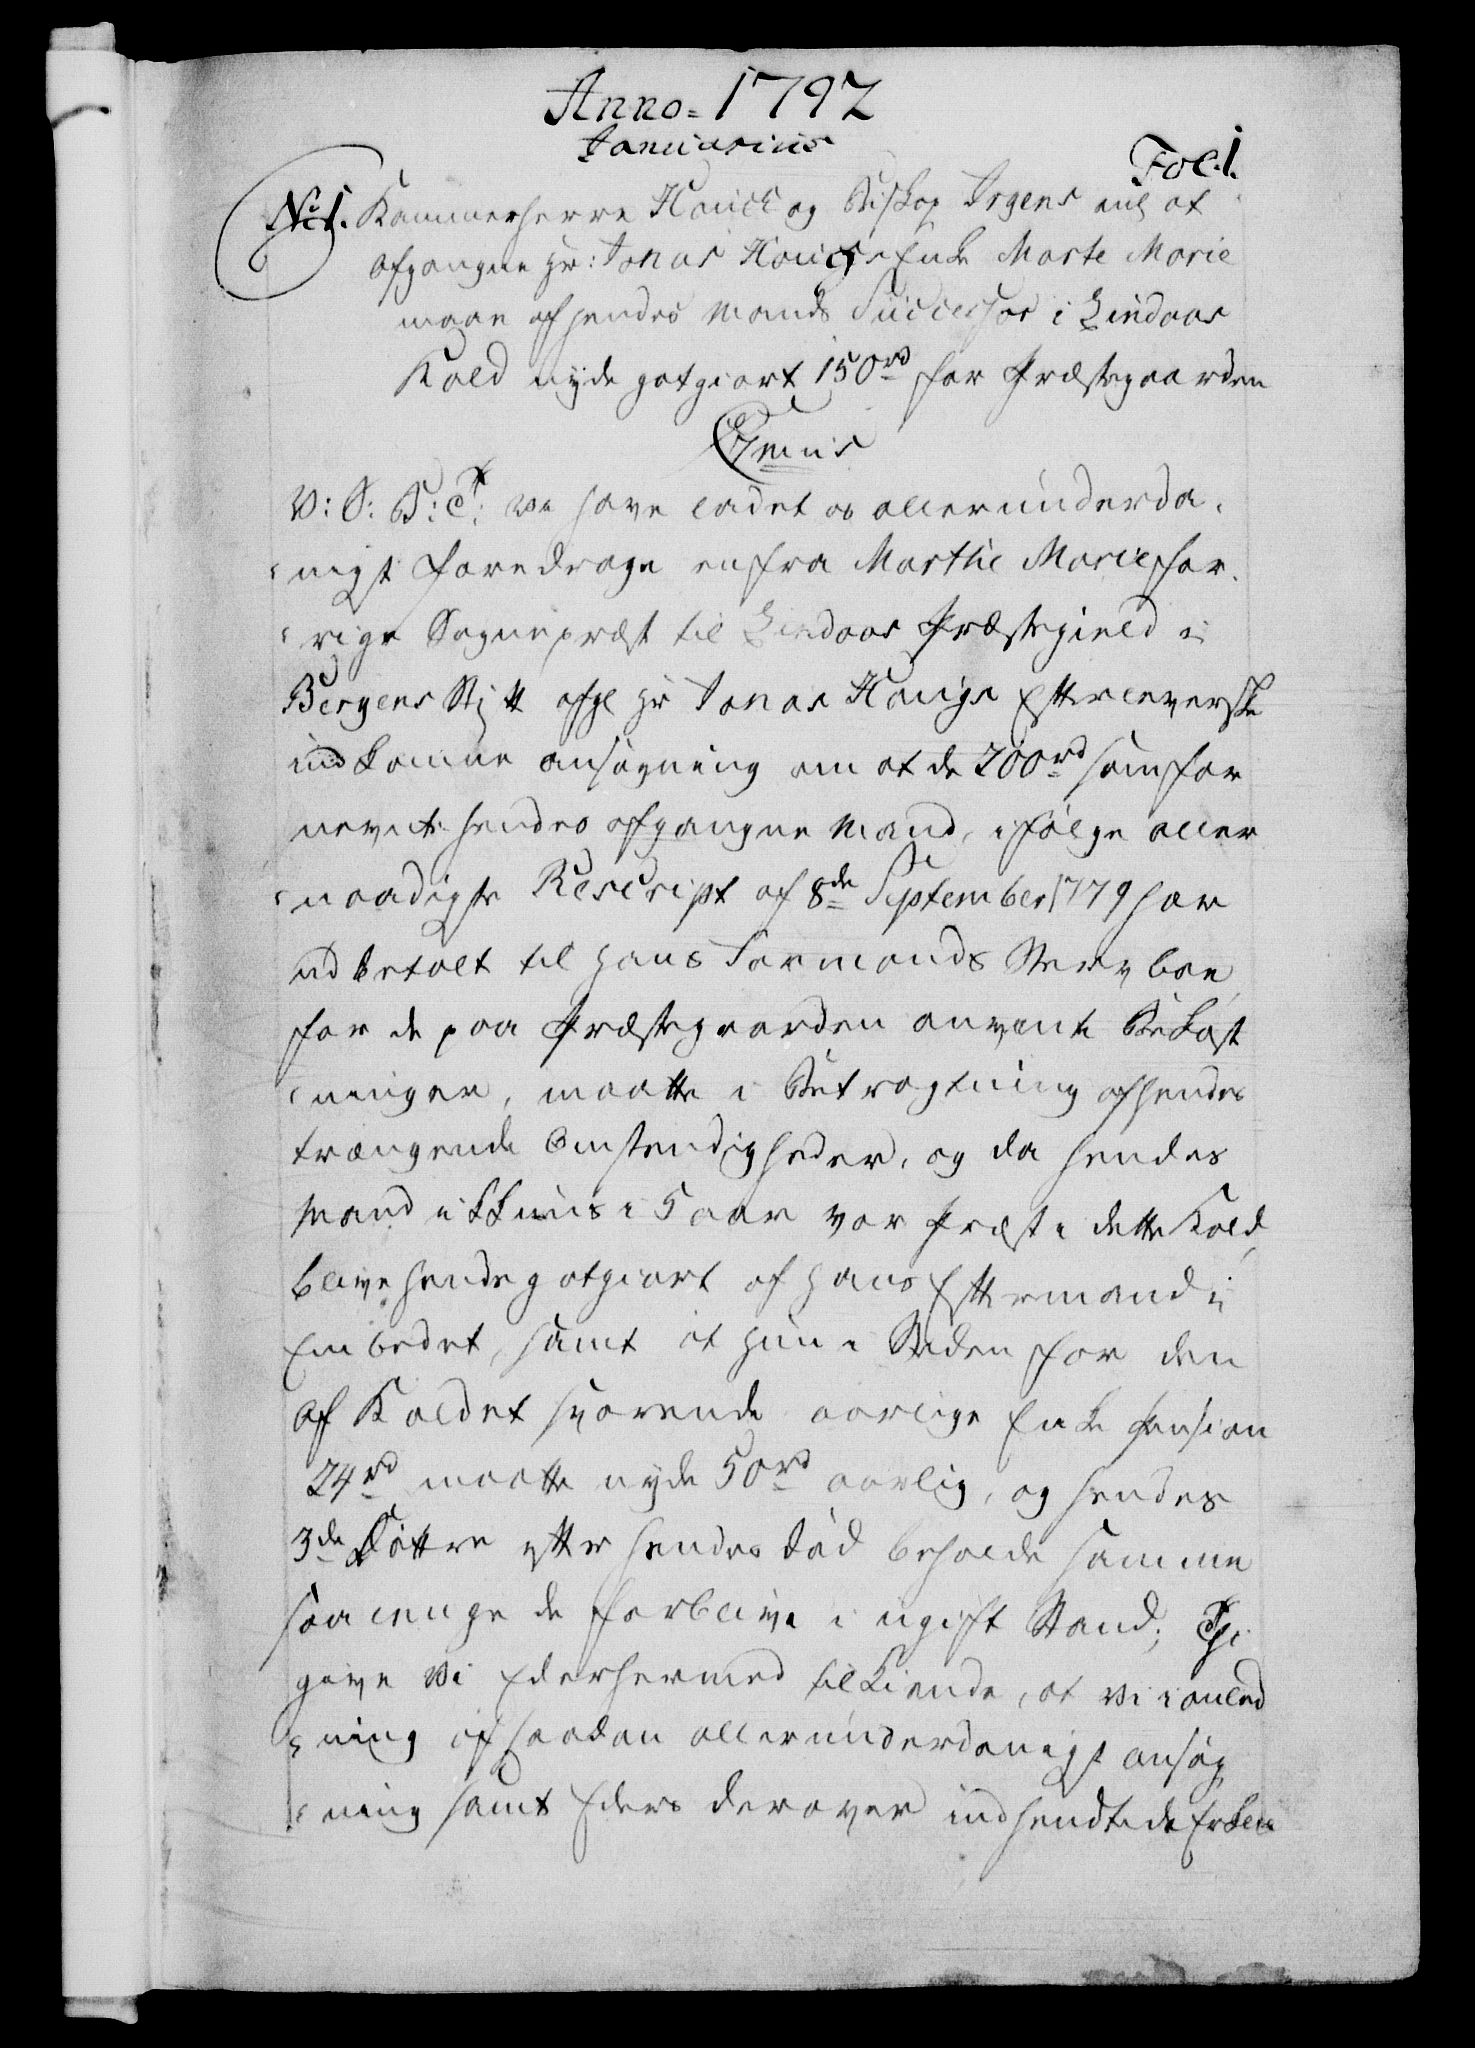 Anno = 1792
Januarius
Fol: 1.
No 1. Kammerherre Hauch og Biskop Irgens anl at
afgangne Hr: Jonas Haugs Enke Marte Marie
maae af hendes Mands Successor i Lindaas
Kald nyde gotgiort 150 rd for Præstegaarden
C 7mus
V: S: B: C: t: Vi have ladet os allerunderda-
nigst foredrage en fra Marthe Marie for-
rige Sognepræst til Lindaas Præstegield i
Bergens Stift afg Hr Jonas Haugs Efterleverske
indkomne ansøgning om at de 200 rd som for
nevnte hendes afgangne Mand, ifølge aller
naadigste Rescript af 8de September 1779 har
udbetalt til hans Formands Stervboe
for de paa Præstegaarden anvente Bekost
ninger, maatte i Betragtning af hendes
trængende Omstendigheder, og da hendes
Mand ikkuns i 5 aar var Præst i dette Kald,
blive hende gotgiort af hans Eftermand i
Embedet, samt at hun i Steden for den
af Kaldet svarende aarlige Enke Pension
24 rd maatte nyde 50 rd aarlig, og hendes
3de Døttre efter hendes død beholde samme
saa lenge de forblive i ugift Stand; Thi
give Vi Eder hermed tilkiende, at Vi i anled
ning af saadan allerunderdanigst ansøg
ning samt Eders derover indsendte de Erklæ